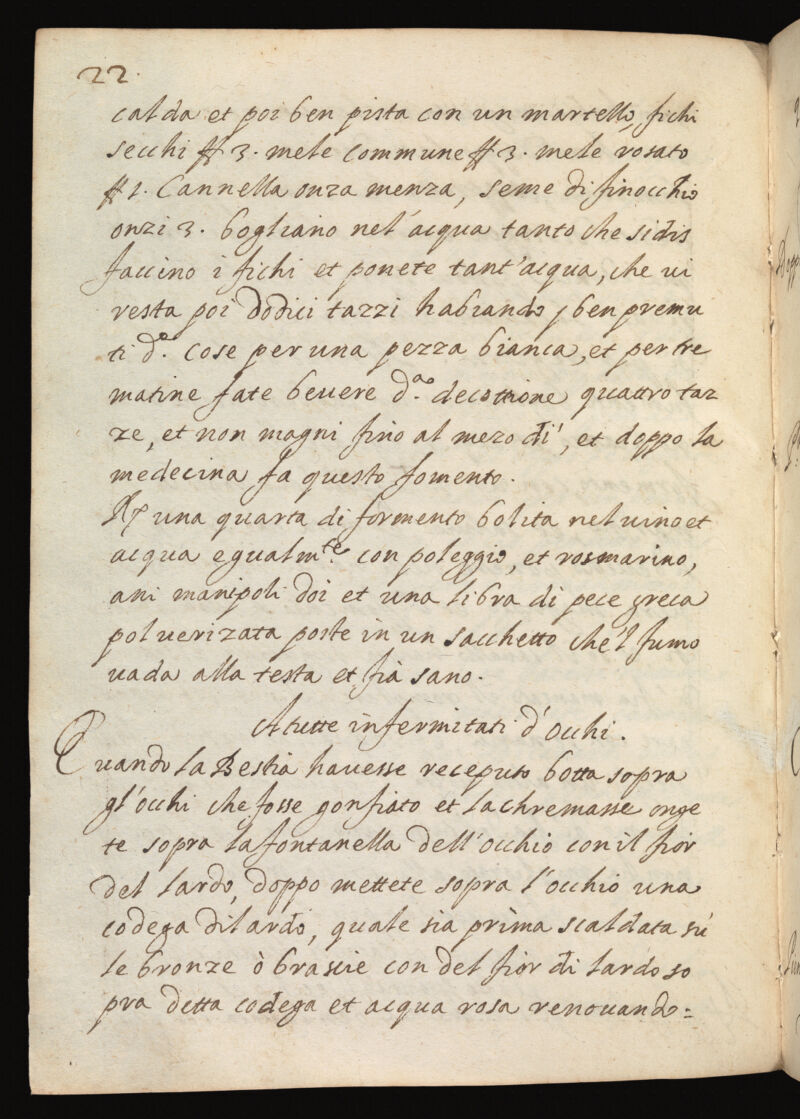 22.
calda et poi ben pista con un martello, fichi
secchi ℔ 3. mele commune ℔ 3. mele rosato
℔ 1. Cannella onza menza, seme di finocchio
onzi 3. bogliano nel'acqua tanto che si dis
faccino i fichi et ponete tant'acqua, che vi
resta poi dodici tazzi habiando ben premu
ti d.º cose per una pezza bianca, et per tre
matine fate bevere d.ª decottione quattro taz
ze, et non magni fino al mezo dì, et doppo la
medecina fa questo fomento.
℞ una quarta di formento bolita nel vino et
acqua egualm.te con poleggio, et rosmarino,
ani manipoli doi et una libra di pece greca
polverizata poste in un sacchetto che'l fumo
vada alla testa et fia sano.
A tutte infermitati d'occhi.
Quando la Bestia havesse receputo botta sopra
gl'occhi che fosse gonfiato et lachremasse onge
te sopra la fontanella dell'occhio con il fior
del lardo, doppo mettete sopra l'occhio una
codega di lardo, quale sia prima scaldata sù
le bronze ò brascie con del fior di lardo so
pra detta codega et acqua rosa renovando=